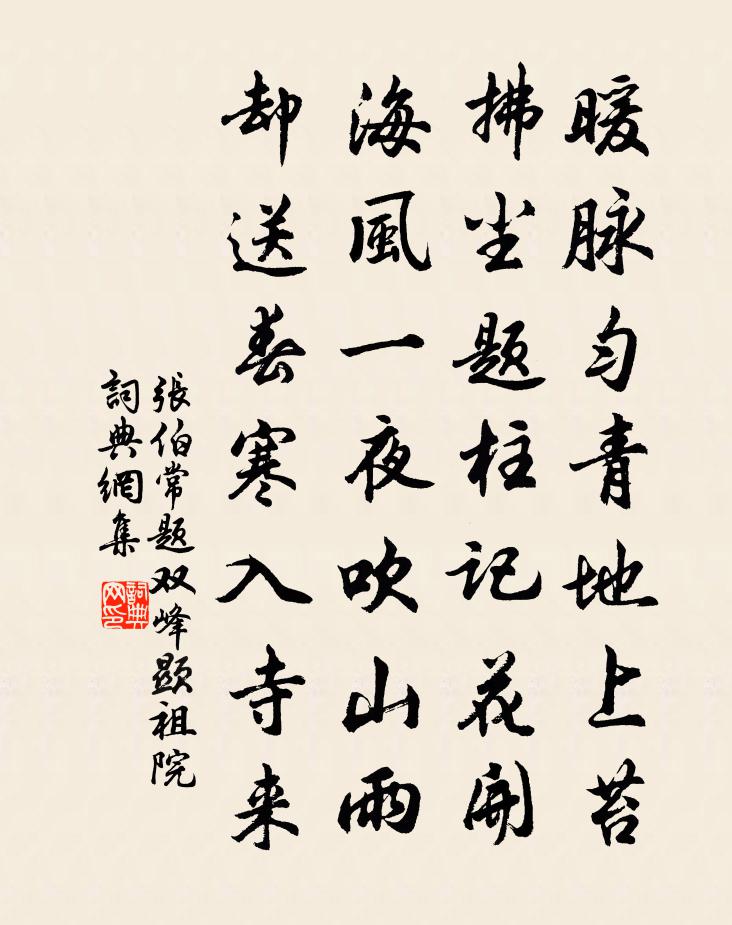 暖脉匀青地上苔
拂尘题柱记花開
海風一夜吹山雨
却送春寒入寺来
張伯常题双峰题祖院
詞典網集
詞典網印